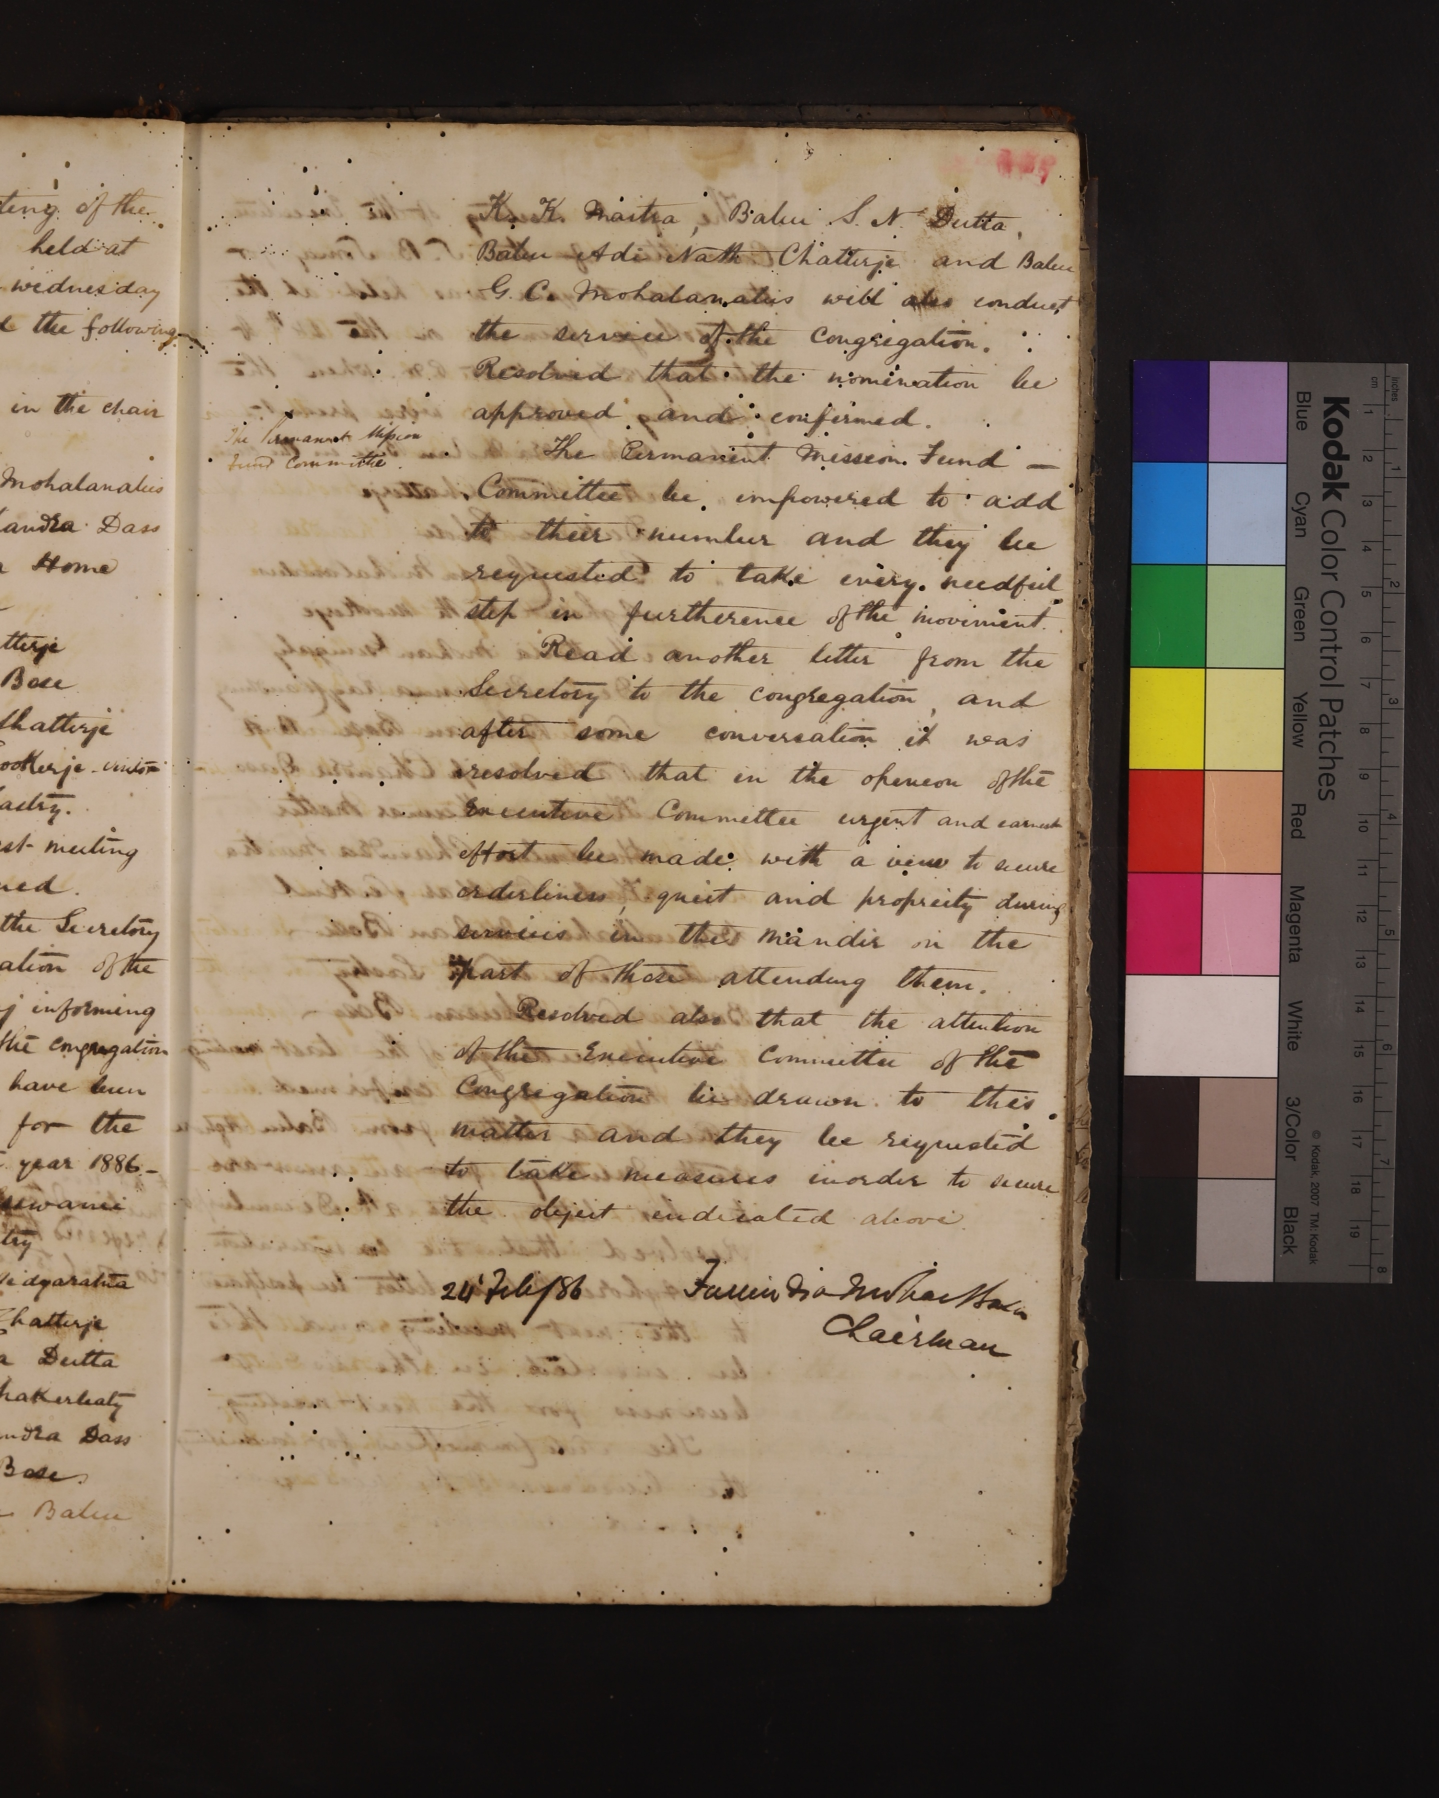 ting of the
held at
wednesday
d the following
in the chair
Mohalanabis
andra Dass
Home
tterje
Bose
Chatterje
ookerje
astry.
st meeting
ned.
the Secretory
ation of the
informing
the congregation
have been
for the
year 1886 -
Chatterje
a Dutta
hakerbaty
ndra Dass
Bose
Babu
K. K. Maitra, Babu S. N. Dutta,
Babu Adi Nath Chatterje and Babu
G. C. Mohalanabis will also conduct
the service of the Congregation.
Resolved that the nomination be
approved and confirmed.
The Permanent Mission
Fund Committee.
The Permanent Mission Fund —
Committee be impowered to add
to their number and they be
requested to take every needful
step in furtherence of the moviment.
Read another letter from the
Secretory to the congregation, and
after some conversation it was
resolved that in the openeon of the
Executive Committee urgent and earnest
effort be made with a veiw to secure
orderliness, queit and propreity during
services in the Mandir on the
part of those attending them.
Resolved also that the attention
of the Executive Committee of the
Congregation be drawn to this
matter and they be requested
to take measures inorder to secure
the object indicated above.
24 Feb/86
Chairman
Kodak Color Control Patches
Blue
Cyan
Green
Yellow
Red
Magenta
White
3/Color
Black
© Kodak, 2007 TM: Kodak
cm 1 2 3 4 5 6 7 8 9 10 11 12 13 14 15 16 17 18 19
inches 1 2 3 4 5 6 7 8